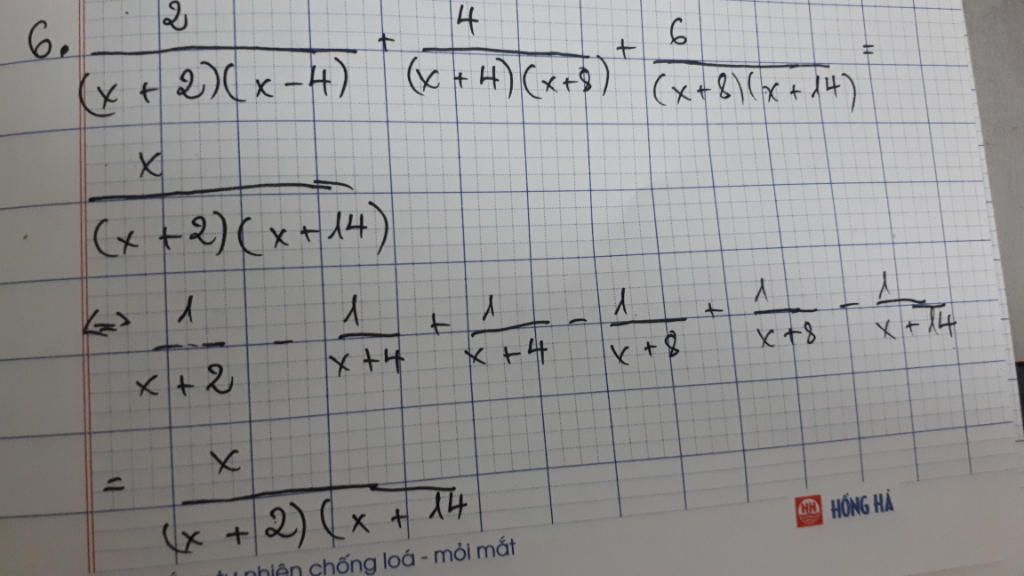 6. 2/((x + 2)(x - 4)) + 4/((x + 4)(x + 8)) + 6/((x + 8)(x + 14)) =
x/((x + 2)(x + 14))
<=> 1/(x + 2) - 1/(x + 4) + 1/(x + 4) - 1/(x + 8) + 1/(x + 8) - 1/(x + 14)
= x/((x + 2)(x + 14
HH HỒNG HÀ
tự nhiên chống loá - mỏi mắt